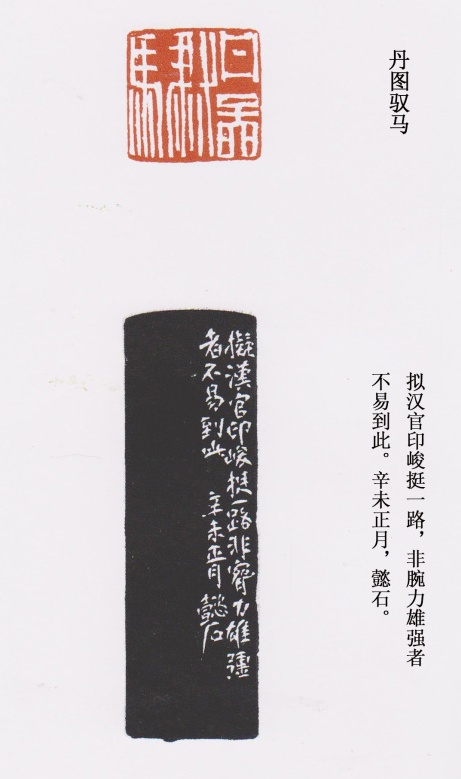 丹图驭马
丹圖
馭
馬
拟汉官印峻挺一路，非腕力雄强者
不易到此。辛未正月，懿石。
擬漢官印峻挺一路非力雄彊
者不易到此 辛未正月 懿石